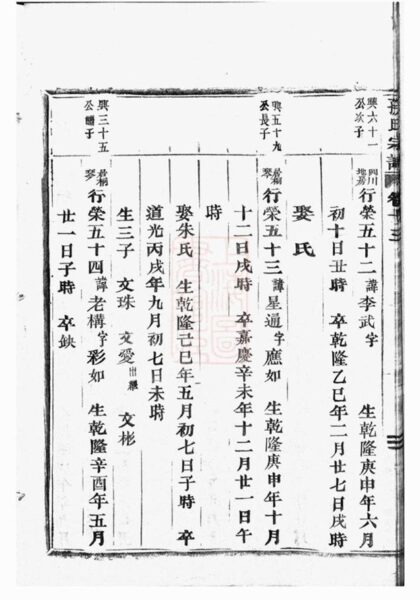 氏宗譜 卷十三
興六十一
公次子
行榮五十二 諱李武字 生乾隆庚申年六月
初十日丑時 卒乾隆乙巳年二月廿七日戌時
娶氏
興五十九
公長子
行榮五十三 諱星通字應如 生乾隆庚申年十月
十二日戌時 卒嘉慶辛未年十二月廿一日午
時
娶朱氏 生乾隆己巳年五月初七日子時 卒
道光丙戌年九月初七日未時
生三子 文珠 文愛出繼 文彬
興三十五
公 子
行榮五十四 諱老構字彩如 生乾隆辛酉年五月
廿一日子時 卒鈌